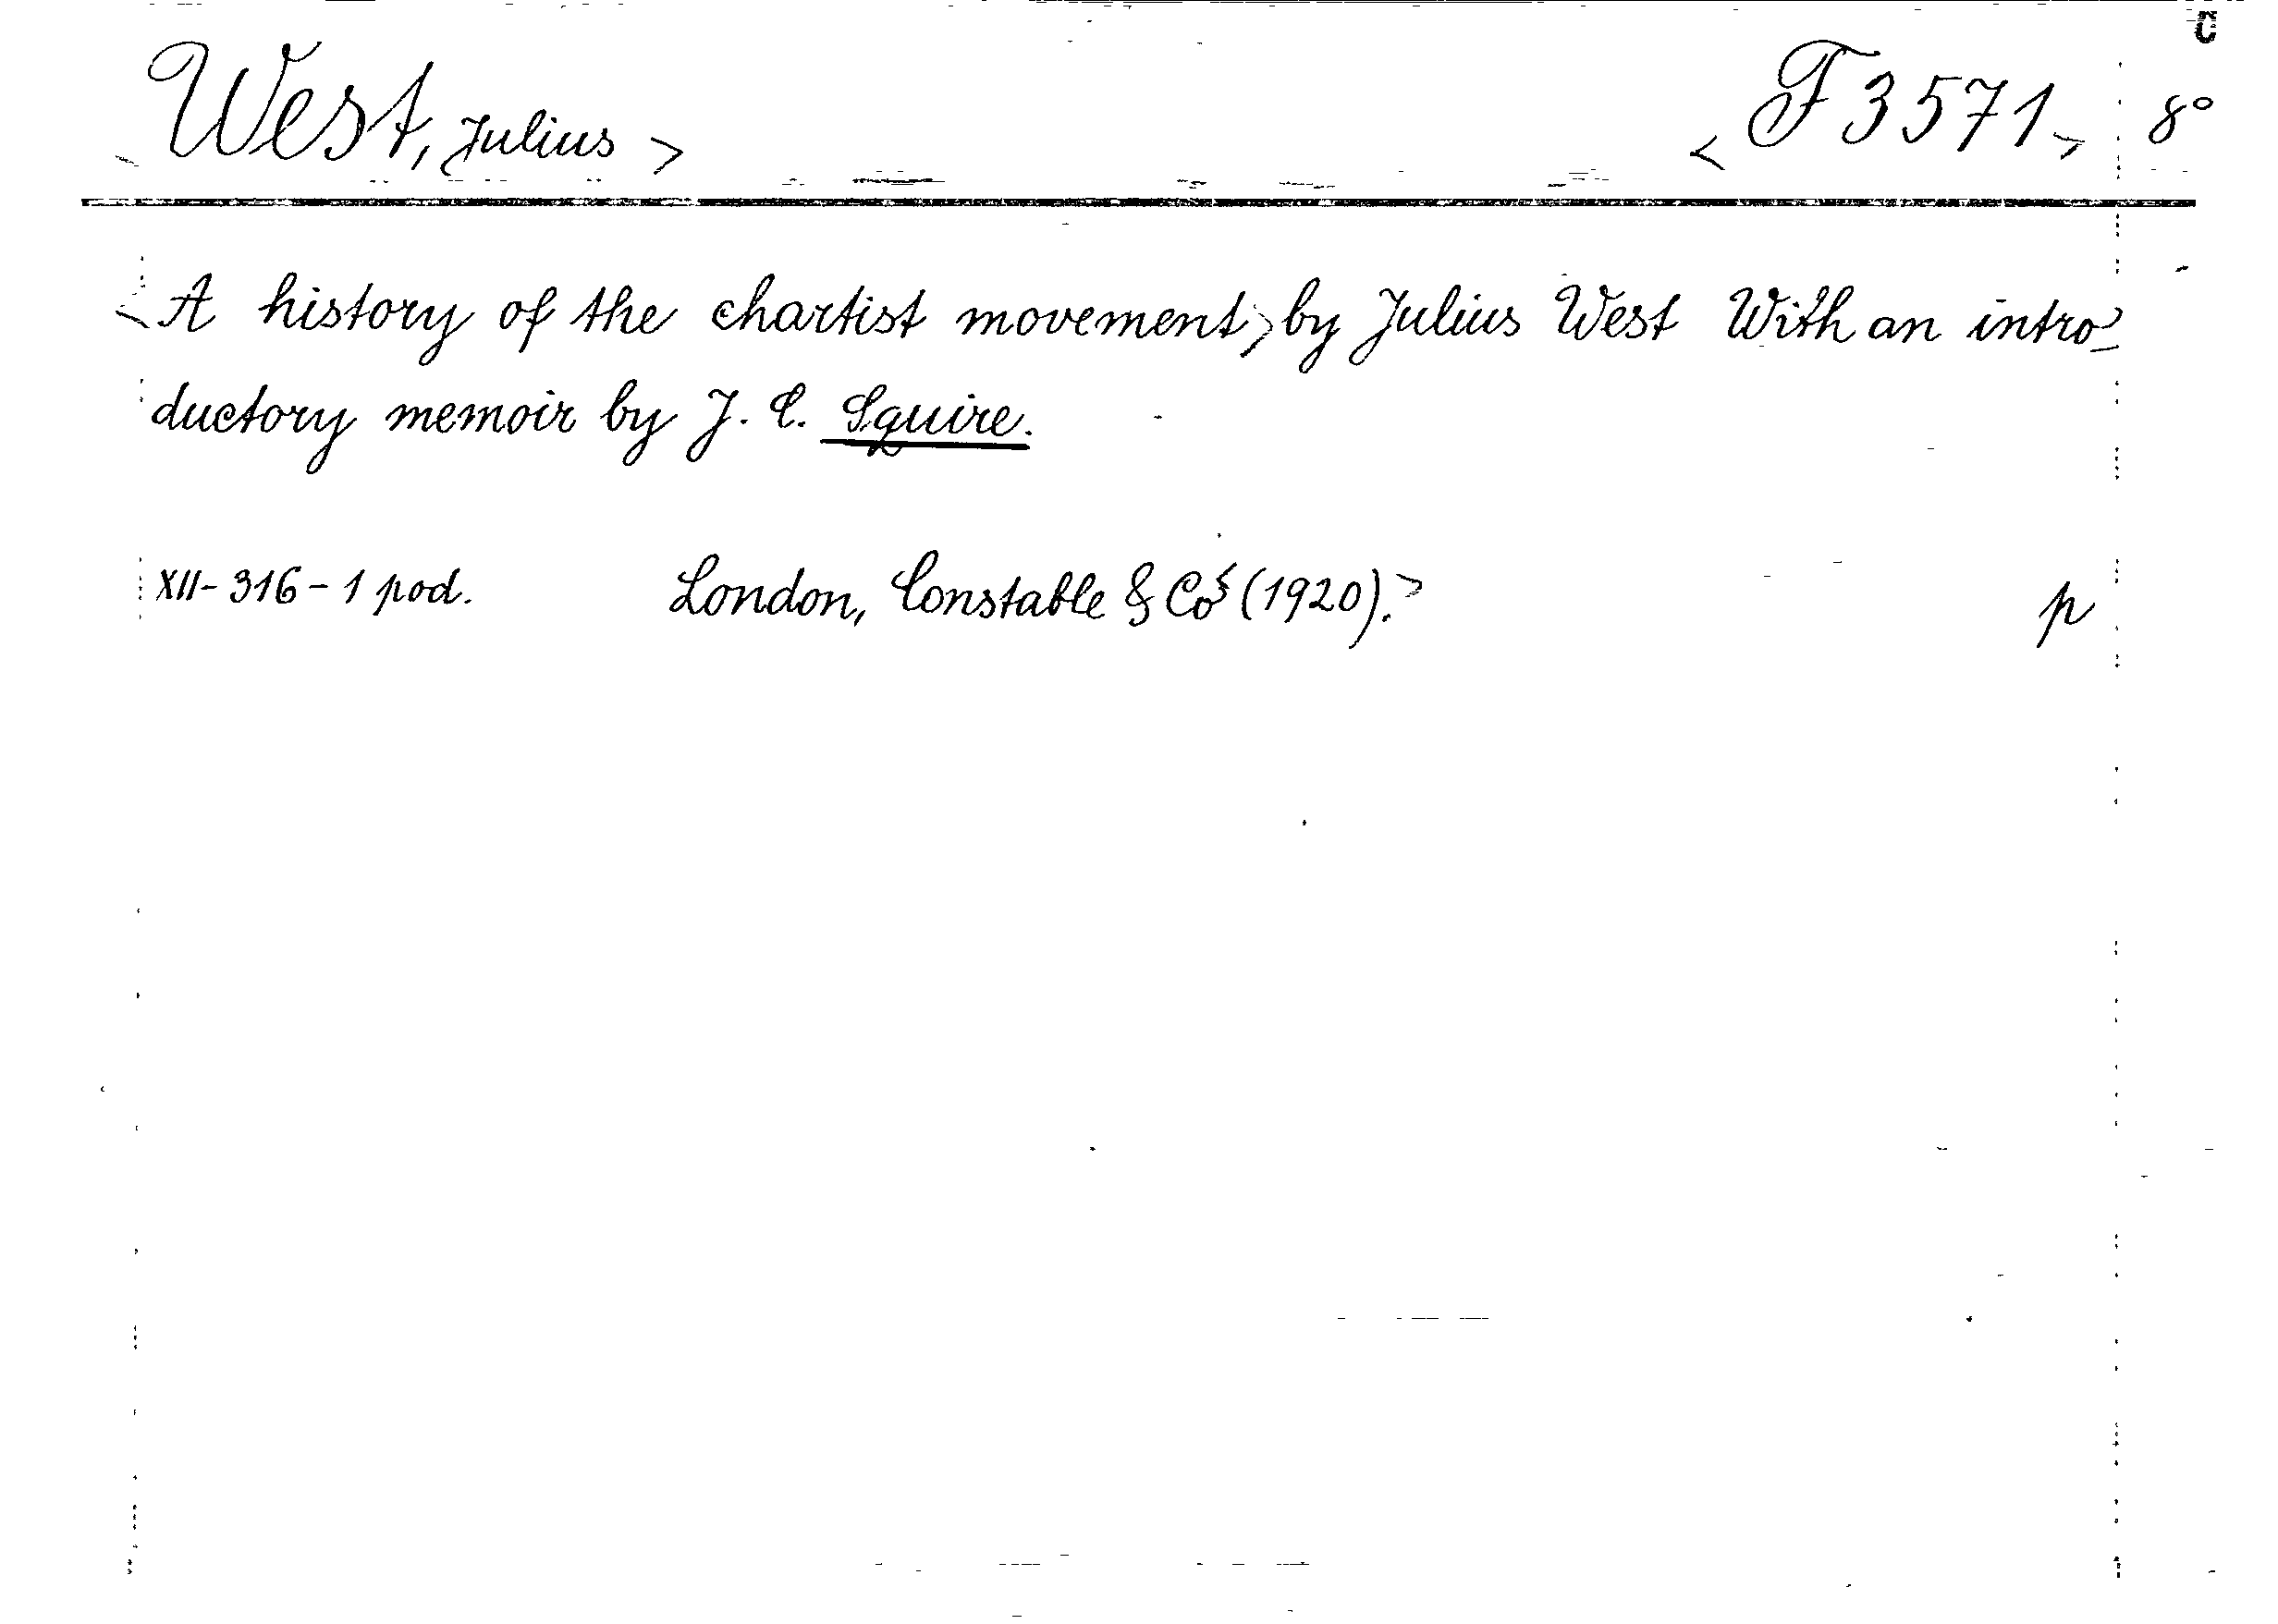 C
<West, Julius> <F 3571> 8°
<A history of the chartist movement,> by Julius West With an intro-
ductory memoir by J. C. Squire.
XII-316-1 pod. London, Constable & Co (1920).>
p